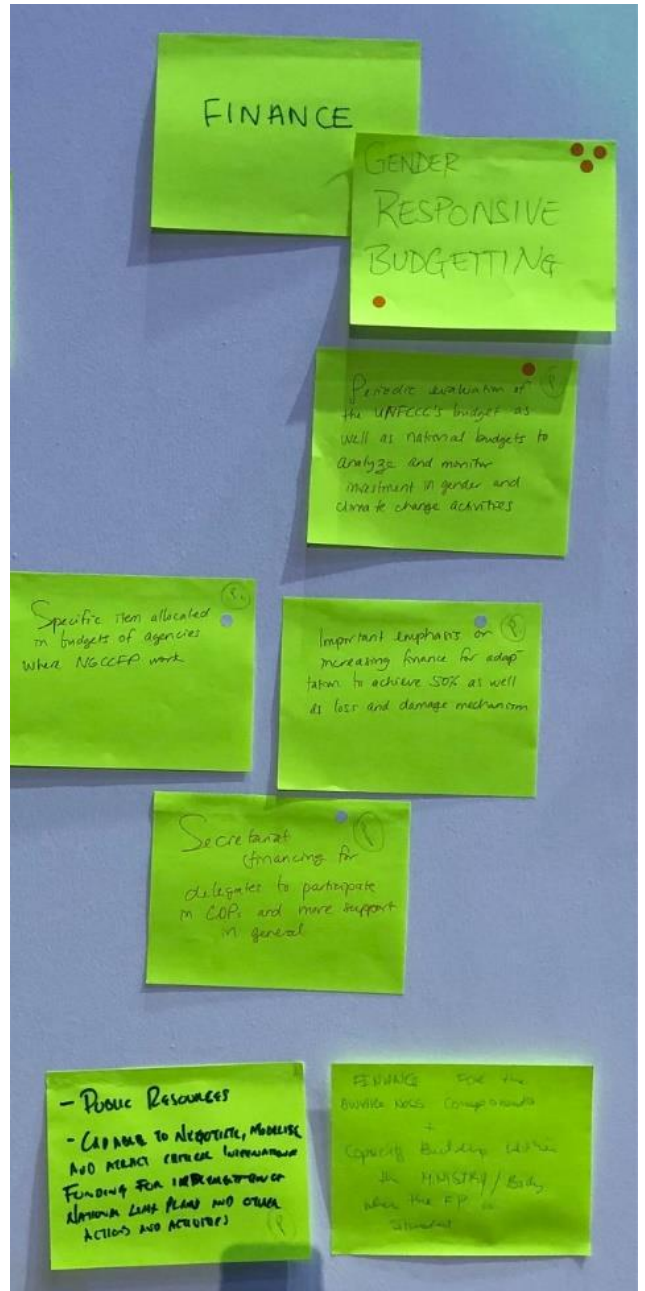 FINANCE
GENDER
RESPONSIVE
BUDGETTING
Periodic evaluation of
the UNFCCC's budget as
well as national budgets to
analyze and monitor
investment in gender and
climate change activities
Specific item allocated
in budgets of agencies
where NGCCFP work
Important emphasis on
increasing finance for adap-
tation to achieve 50% as well
as loss and damage mechanism
Secretariat
financing for
delegates to participate
in COPs and more support
in general
- PUBLIC RESOURCES
- CAPABLE TO NEGOTIATE, MOBILISE
AND ATTRACT CRITICAL INTERNATIONAL
FUNDING FOR IMPLEMENTATION OF
NATIONAL PLANS AND OTHER
ACTIONS AND ACTIVITIES
FINANCE FOR the
Components
+
Capacity Building within
the MINISTRY / Body
when the FP is
situated